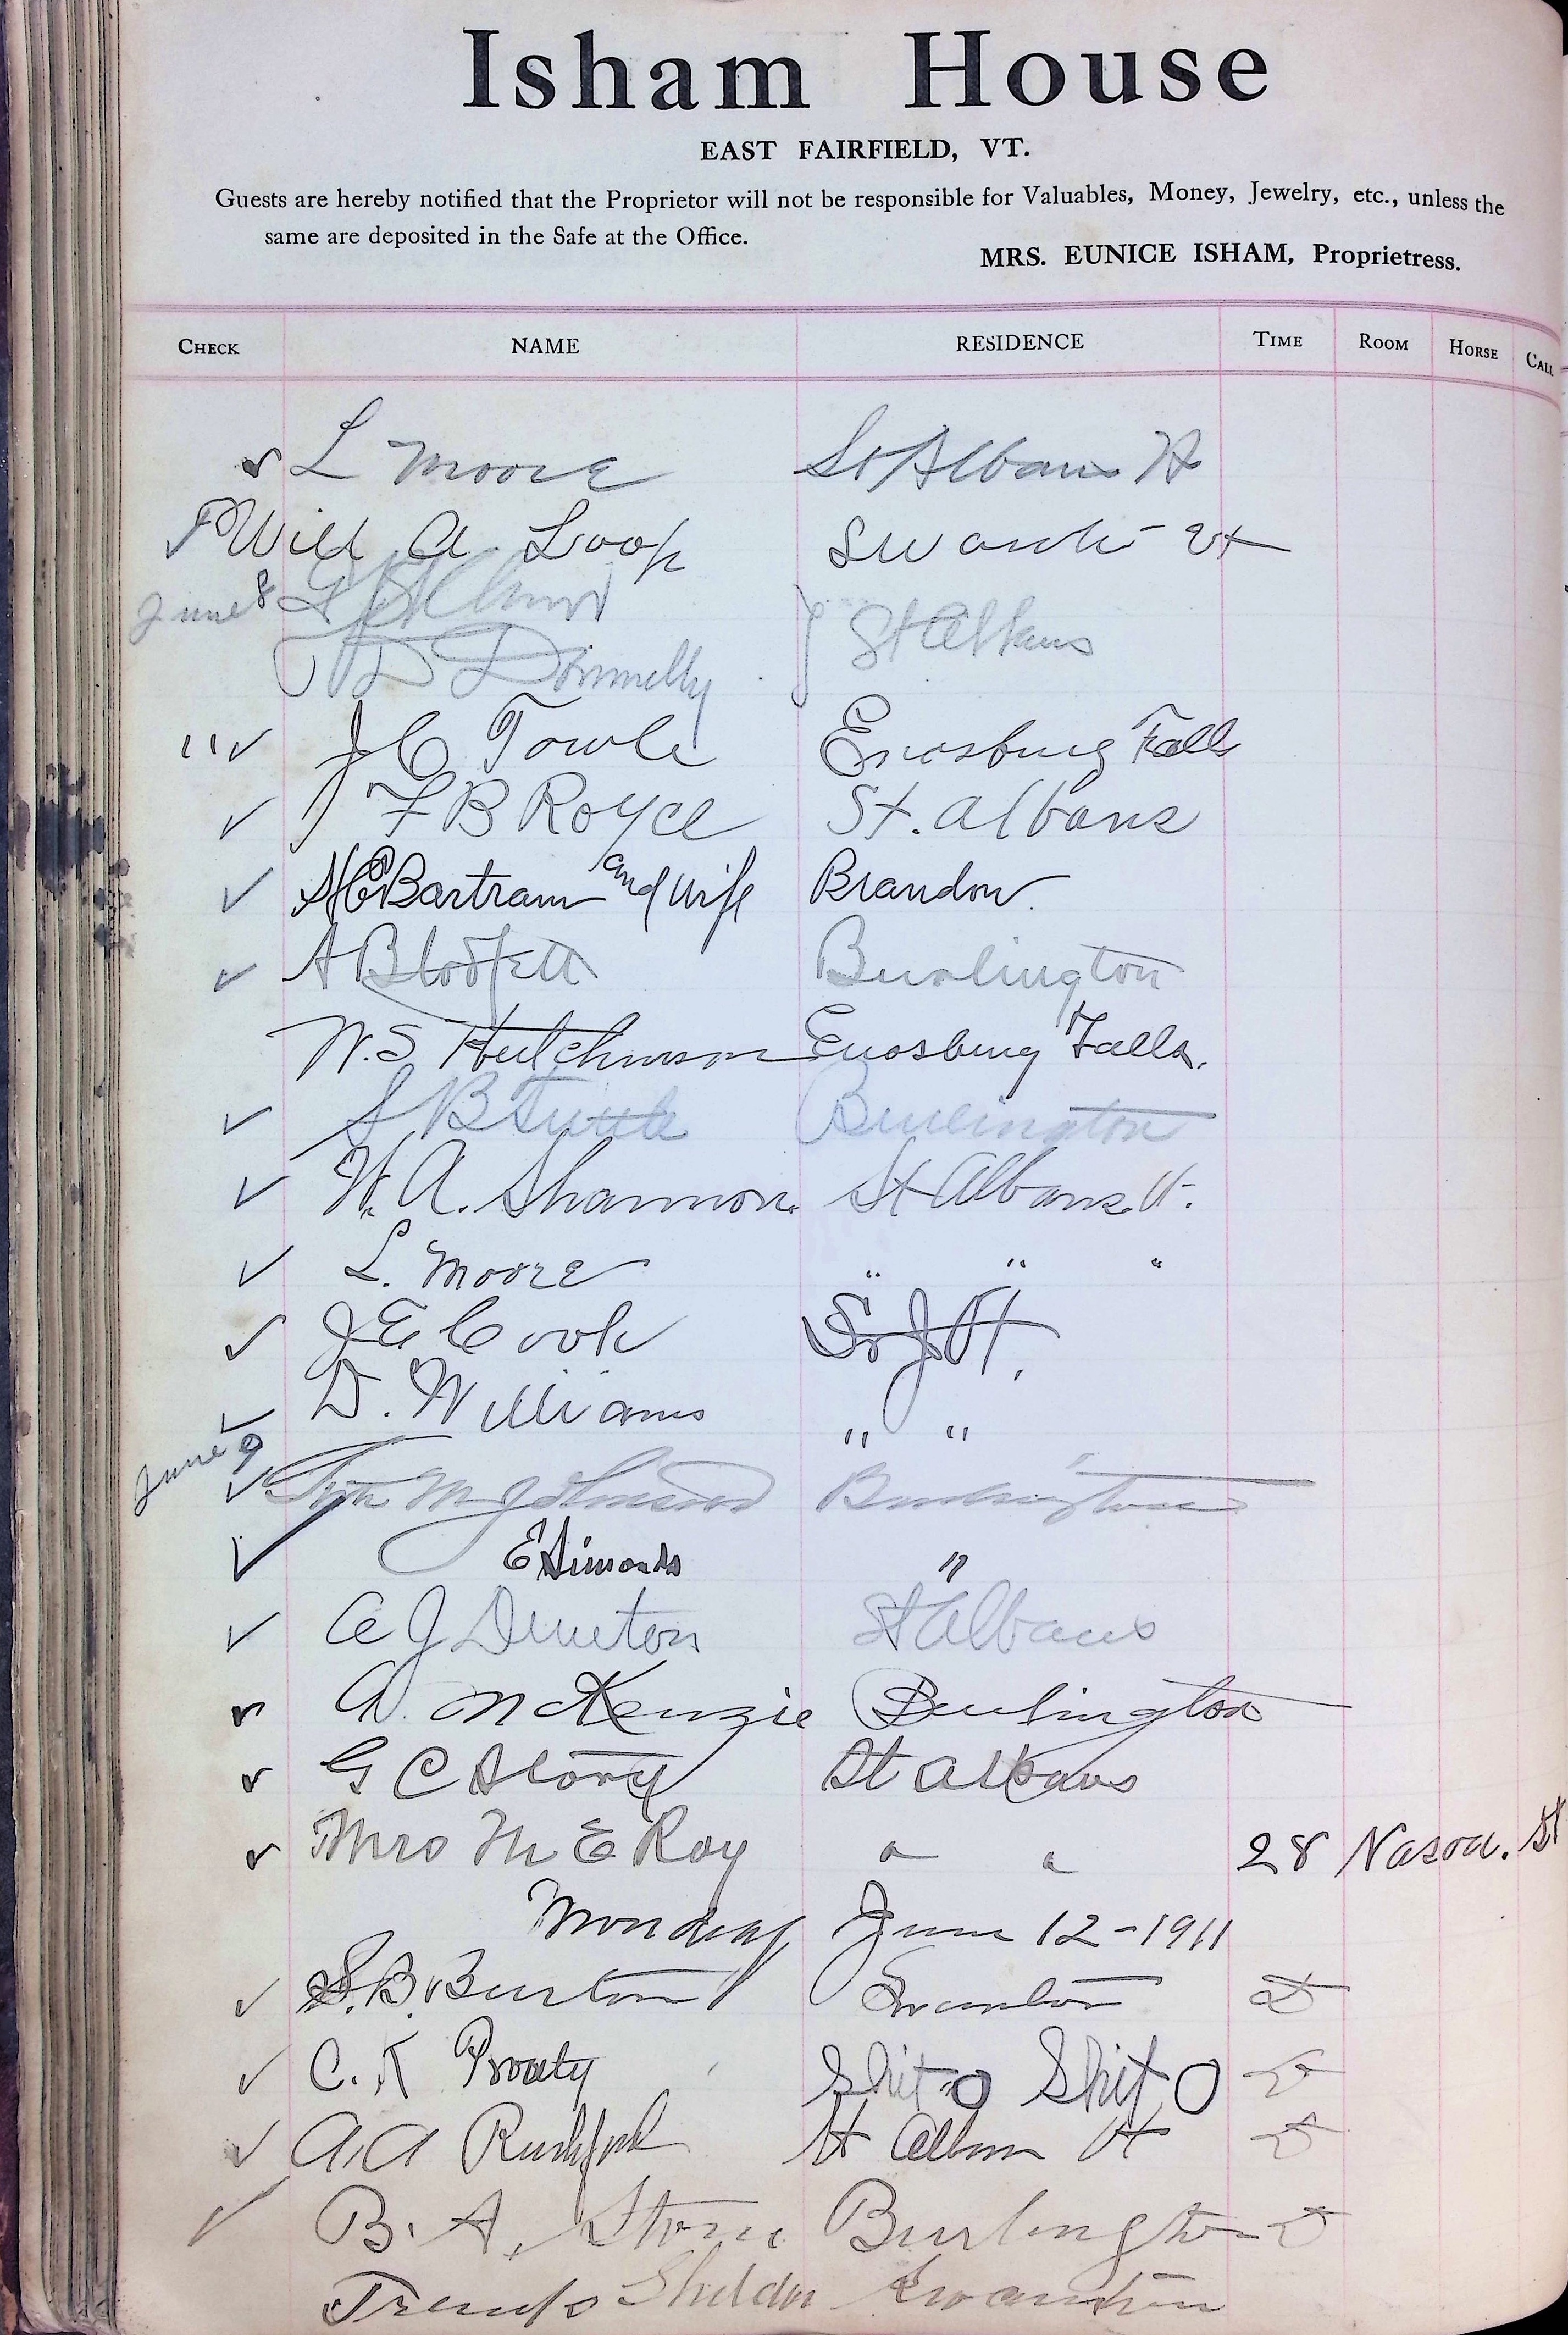 Isham House
EAST FAIRFIELD, VT.
Guests are hereby notified that the Proprietor will not be responsible for Valuables, Money, Jewelry, etc., unless the
same are deposited in the Safe at the Office.
MRS. EUNICE ISHAM, Proprietress.
CHECK NAME RESIDENCE TIME ROOM HORSE CALL
L Moore St Albans Vt
Will A Loop Swanton Vt
June 8
D Donnelly St Albans
" J C Towle Enosburg Falls
F B Royce St. Albans
Bartram and wife Brandon
A Blodgett Burlington
W. S. Hutchinson Enosburg Falls.
S B Tuttle Burlington
W. A. Shannon St Albans Vt.
L. Moore " " "
J E Cook St J Vt.
D. Williams " "
June 9
M Johnson Burlington
E Simonds "
A J Denton St Albans
A. McKenzie Burlington
G C Story St Albans
Mrs M E Roy " " 28 Nason. St
Monday June 12-1911
S. B. Burton Swanton D
C. K Prouty Shit O Shit O D
A A St Albans Vt D
B. A. Stone Burlington D
Sheldon Swanton